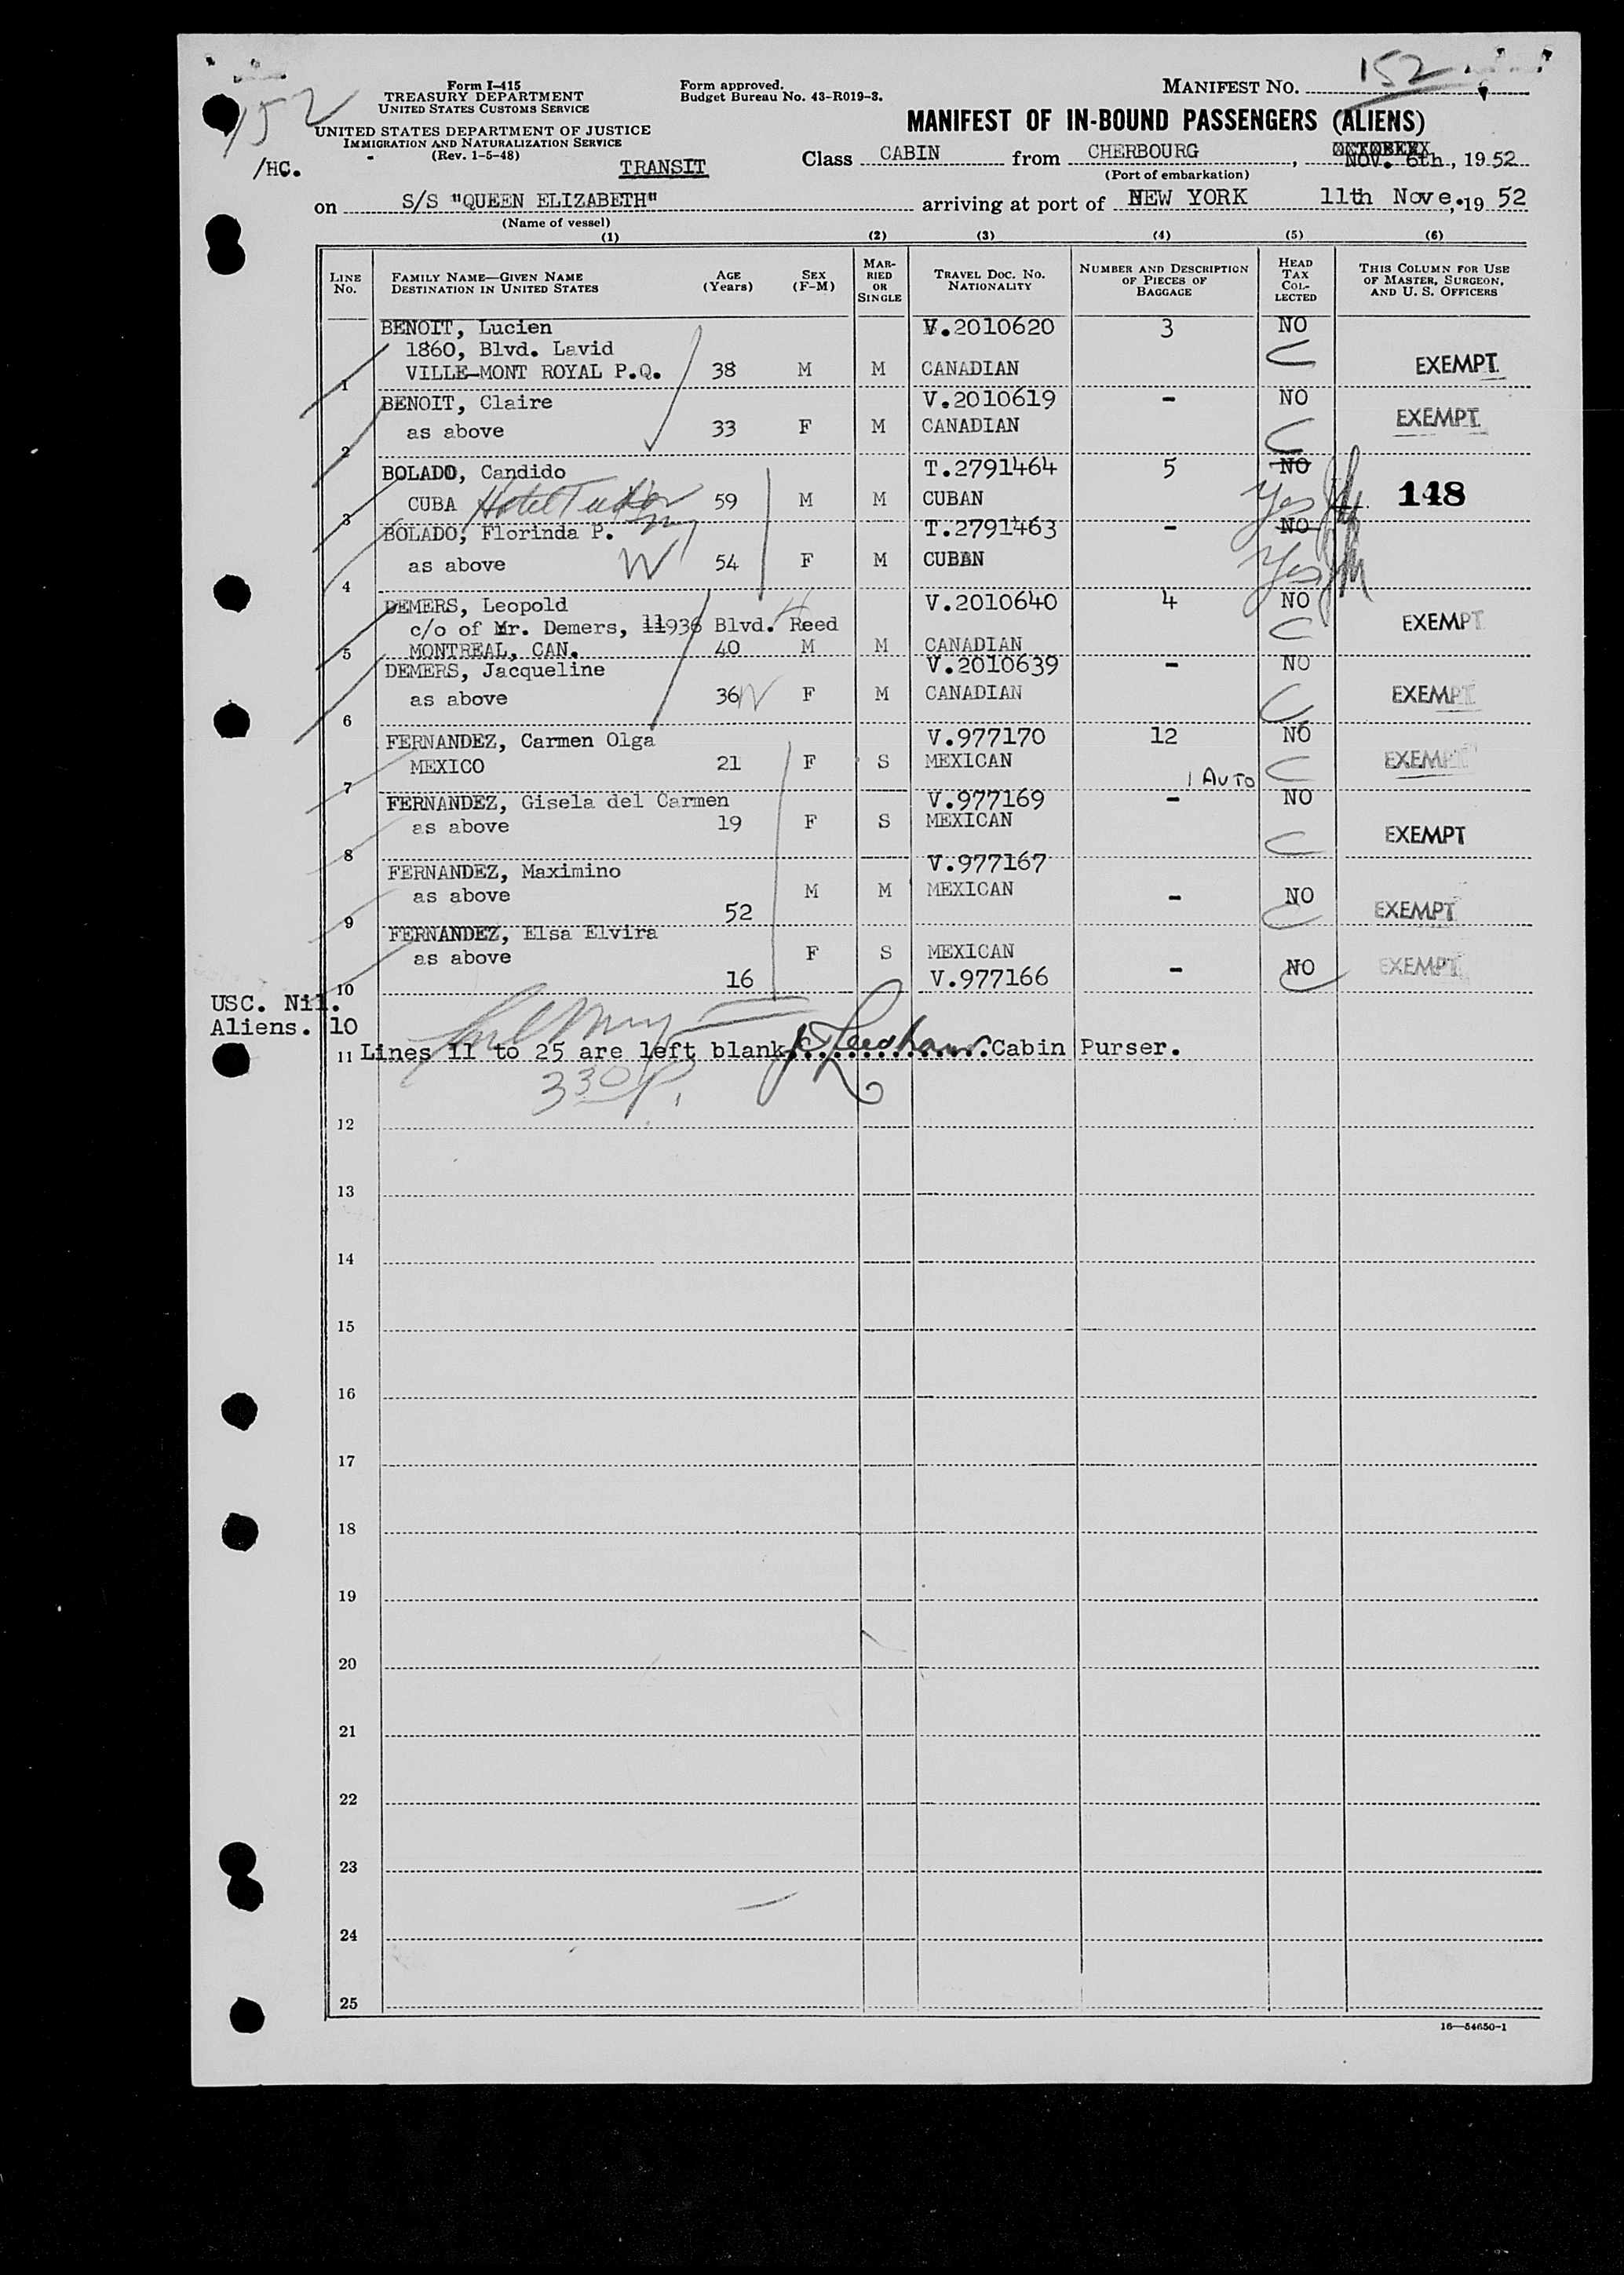 152
152
Form I-415
TREASURY DEPARTMENT
UNITED STATES CUSTOMS SERVICE
UNITED STATES DEPARTMENT OF JUSTICE
IMMIGRATION AND NATURALIZATION SERVICE
(Rev. 1-5-48)
/HC.
TRANSIT
Form approved.
Budget Bureau No. 43-R019-3.
MANIFEST NO.
MANIFEST OF IN-BOUND PASSENGERS (ALIENS)
Class CABIN from CHERBOURG, NOV. 6th, 1952
(Port of embarkation)
on S/S "QUEEN ELIZABETH" arriving at port of NEW YORK 11th Nove, 19 52
(Name of vessel)
(1) (2) (3) (4) (5) (6)
LINE No. FAMILY NAME—GIVEN NAME DESTINATION IN UNITED STATES AGE (Years) SEX (F-M) MARRIED OR SINGLE TRAVEL DOC. NO. NATIONALITY NUMBER AND DESCRIPTION OF PIECES OF BAGGAGE HEAD TAX COLLECTED THIS COLUMN FOR USE OF MASTER, SURGEON, AND U. S. OFFICERS
BENOIT, Lucien V.2010620 3 NO
1860, Blvd. Lavid
1 VILLE-MONT ROYAL P.Q. 38 M M CANADIAN C EXEMPT.
BENOIT, Claire V.2010619 - NO
2 as above 33 F M CANADIAN C EXEMPT.
BOLADO, Candido T.2791464 5 NO
3 CUBA Hotel Tudor 59 M M CUBAN Yes 148
BOLADO, Florinda P. T.2791463 - NO
4 as above W 54 F M CUBAN Yes
DEMERS, Leopold V.2010640 4 NO
c/o of Mr. Demers, 11936 Blvd. Reed C EXEMPT
5 MONTREAL, CAN. 40 M M CANADIAN
DEMERS, Jacqueline V.2010639 - NO
6 as above 36 W F M CANADIAN C EXEMPT
FERNANDEZ, Carmen Olga V.977170 12 NO
7 MEXICO 21 F S MEXICAN 1 AUTO C EXEMPT
FERNANDEZ, Gisela del Carmen V.977169 - NO
8 as above 19 F S MEXICAN C EXEMPT
FERNANDEZ, Maximino V.977167
9 as above 52 M M MEXICAN - NO C EXEMPT
FERNANDEZ, Elsa Elvira
as above F S MEXICAN
10 16 V.977166 - NO EXEMPT
USC. Nil.
Aliens. 10
11 Lines 11 to 25 are left blank Cabin Purser.
330 P.
12
13
14
15
16
17
18
19
20
21
22
23
24
25
16—54650-1